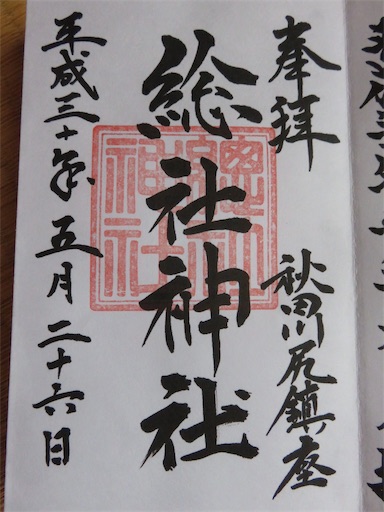 奉拝
秋田川尻鎮座
総社神社
平成三十年五月二十六日